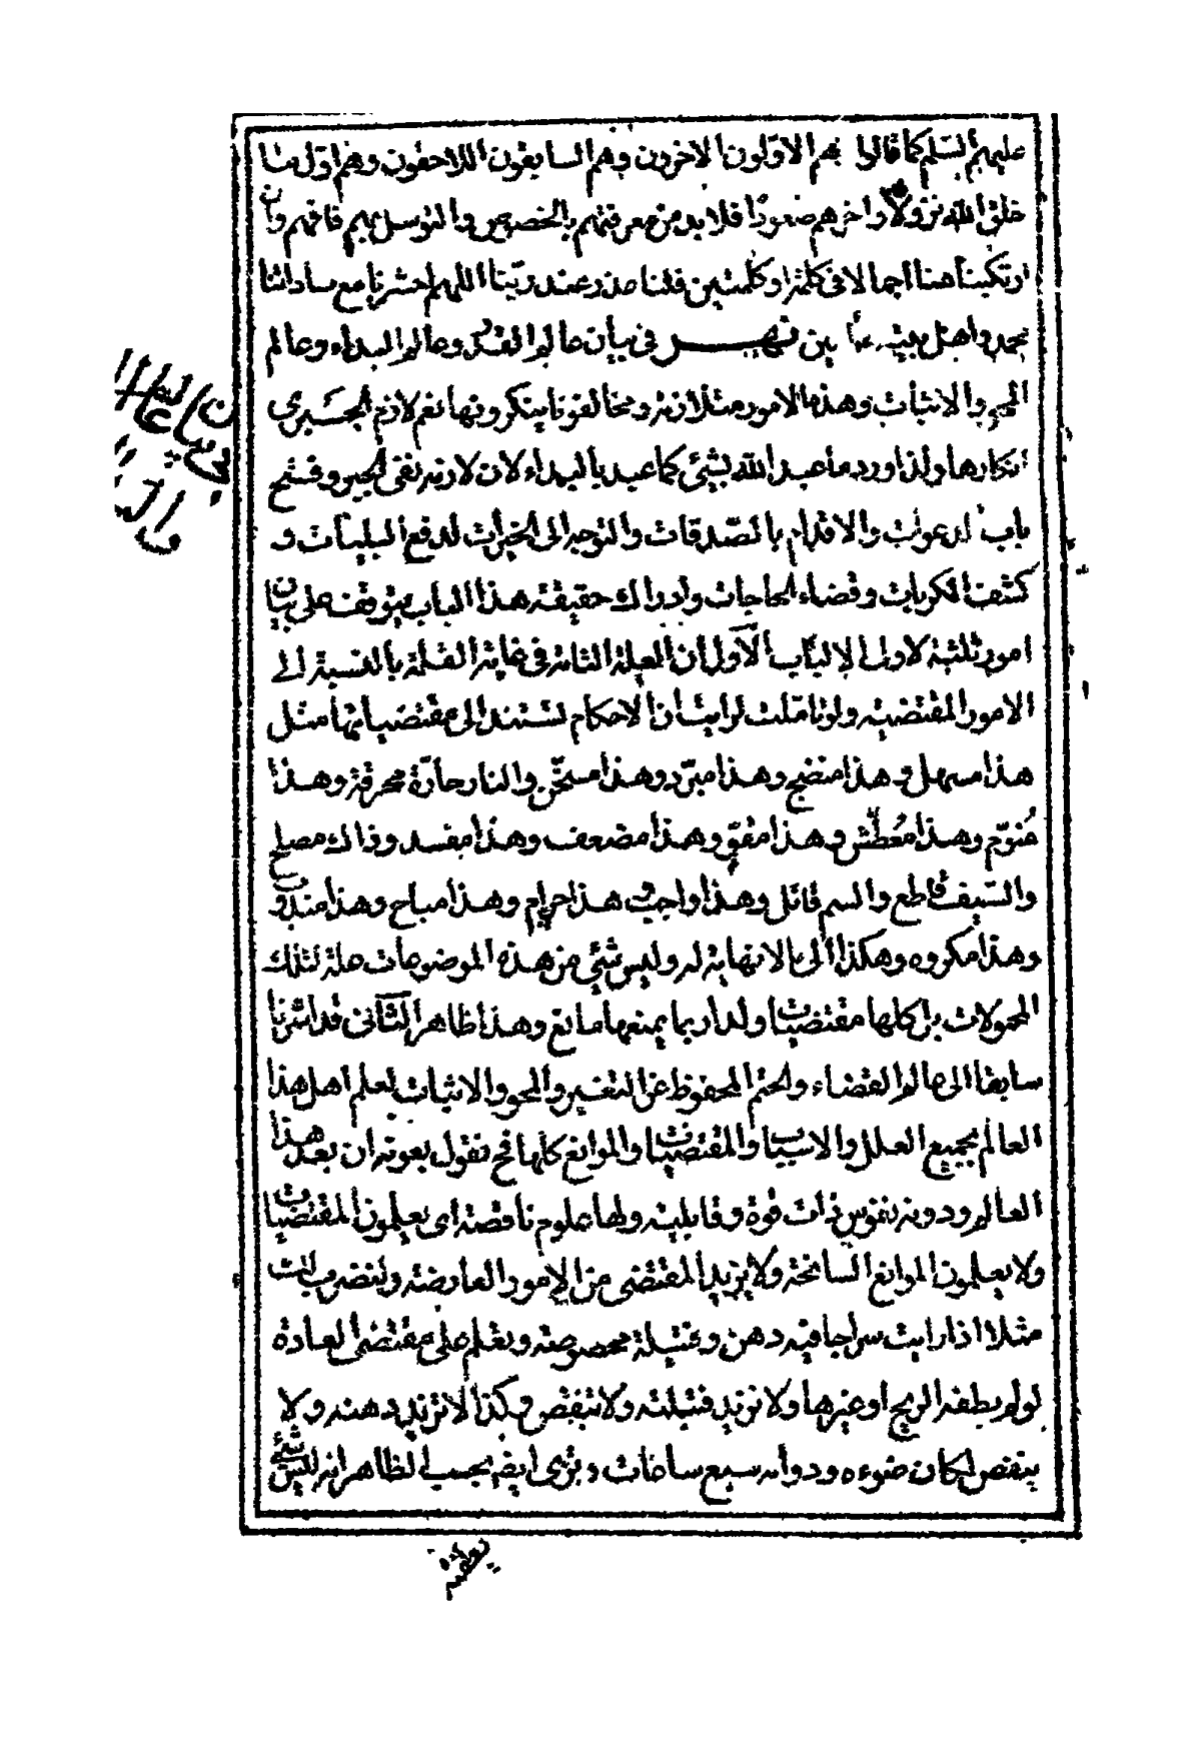 عليهم السلم كما قالوا فهم الاولون الاخرون وهم السابقون اللاحقون وهم اول ما
خلق الله نزولا واخرهم صعودا فلابد من معرفتهم بالخصوص والتوسل بهم فافهم وان
ارتكبنا هنا اجمالا فی كلمة او كلمتين فلنا عذر عند ربنا اللهم احشرنا مع ساداتنا
محمد واهل بيته امين نهـــــر فی بيان عالم القدر وعالم البداء وعالم
المحو والاثبات وهذه الامور متلازمة ومخالفونا ينكرونها نعم لازم الجبری
انكارها ولذا ورد ما عبد الله بشیء كما عبد بالبداء لان لازمه نفی الجبر وفتح
باب الدعوات والاقدام بالصدقات والتوجه الی الخيرات لدفع البليات و
كشف الكربات وقضاء الحاجات وادراك حقيقة هذا الباب يتوقف علی بيان
امور ثلثة لاولی الالباب الاول ان العلة التامة فی غاية القلة بالنسبة الی
الامور المقتضية ولو تاملت لرايت ان الاحكام تستند الی مقتضياتها مثل
هذا مسهل وهذا منضج وهذا مبرد وهذا مسخن والنار حارة محرقة وهذا
منوم وهذا معطش وهذا مقو وهذا مضعف وهذا مفسد وذاك مصلح
والسيف قاطع والسم قاتل وهذا واجب وهذا حرام وهذا مباح وهذا مندوب
وهذا مكروه وهكذا الی ما لا نهاية له وليس شیء من هذه الموضوعات علة لتلك
المحمولات بل كلها مقتضيات ولذا ربما يمنعها مانع وهذا ظاهر الثانی قد اشرنا
سابقا الی عالم القضاء والحتم المحفوظ عن التغيير والمحو والاثبات لعلم اهل هذا
العالم بجميع العلل والاسباب والمقتضيات والموانع كلها فح نقول بعونه ان بعد هذا
العالم ودونه نفوس ذات قوة وقابلية ولها علوم ناقصة ای يعلمون المقتضيات
ولا يعلمون الموانع السانحة ولا يزيد المقتضی من الامور العارضة
مثلا اذا رايت سراجا فيه دهن وفتيلة مخصوصة وتعلم علی مقتضی العادة
لو لم يطفه الريح او غيرها ولا تزيد فتيلته ولا تنقص وكذا لا تزيد دهنه ولا
ينقص لكان ضوءه ودوامه سبع ساعات وتری ايضا بحسب الظاهر انه ليس شیء
يقتضی